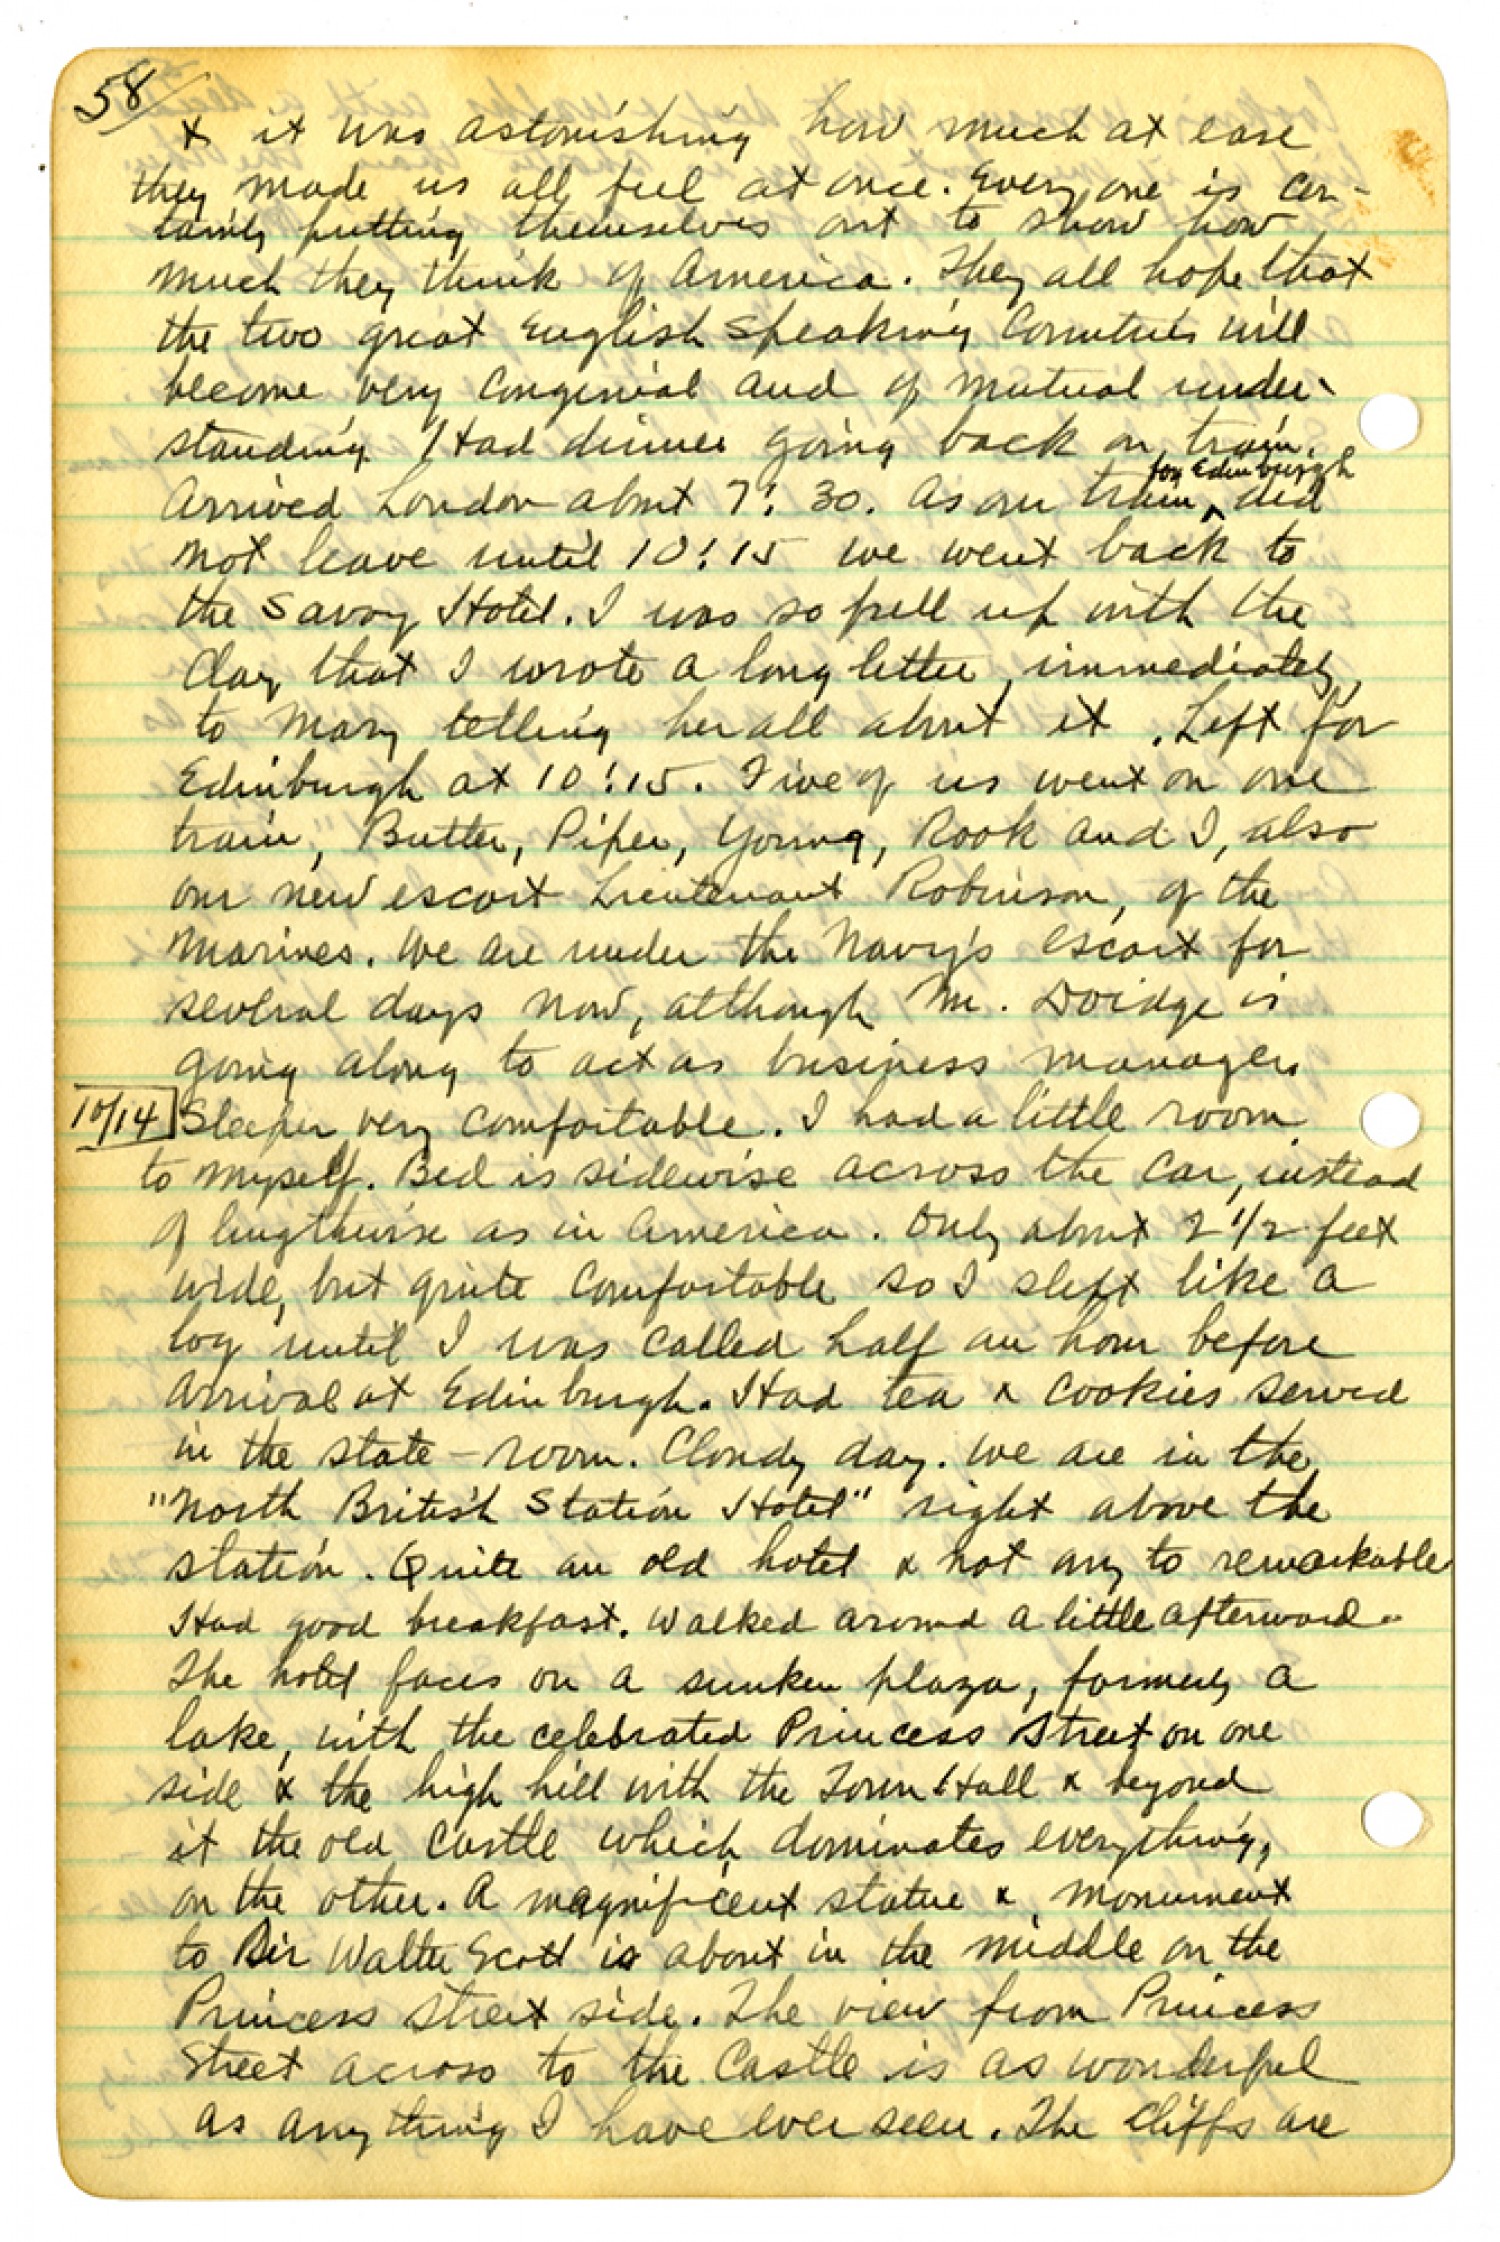 58
& it was astonishing how much at ease
they made us all feel at once. Every one is cer-
tainly putting themselves out to show how
much they think of America. They all hope that
the two great English speaking Countries will
become very congenial and of mutual under-
standing. Had dinner going back on train.
for Edinburgh
Arrived London about 7:30. As our train ^ did
not leave until 10:15 we went back to
the Savoy Hotel. I was so full up with the
day that I wrote a long letter, immediately,
to Mary telling her all about it. Left for
Edinburgh at 10:15. Five of us went on one
train, Butler, Piper, Young, Rook and I, also
our new escort Lieutenant Robinson, of the
Marines. We are under the Navy's escort for
several days now, although Mr. Doidge is
going along to act as business manager.
10/14 Sleeper very comfortable. I had a little room
to myself. Bed is sidewise across the car, instead
of lengthwise as in America. Only about 2 1/2 feet
wide, but quite comfortable so I slept like a
log until I was called half an hour before
arrival at Edinburgh. Had tea & cookies served
in the state-room. Cloudy day. We are in the
"North British Station Hotel" right above the
station. Quite an old hotel & not any to remarkable
Had good breakfast. Walked around a little afterward.
The hotel faces on a sunken plaza, formerly a
lake, with the celebrated Princess Street on one
side & the high hill with the Town Hall & beyond
it the old Castle which dominates everything,
on the other. A magnificent statue & monument
to Sir Walter Scott is about in the middle on the
Princess Street side. The view from Princess
Street across to the Castle is as wonderful
as anything I have ever seen. The cliffs are